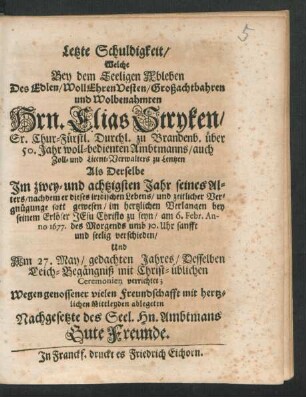 5
Letzte Schuldigkeit/
Welche
Bey dem Seeligen Ableben
Des Edlen/WollEhrenVesten/Großachtbahren
und Wolbenahmten
Hrn. Elias Stryken/
Sr. Chur-Fürstl. Durchl. zu Brandenb. über
50. Jahr woll-bedienten Ambtmanns/auch
Zoll- und Licent-Verwalters zu Lentzen
Als Derselbe
Im zwey- und achtzigsten Jahr seines Al-
ters/nachdem er dieses irrdischen Lebens/ und zeitlicher Ver-
gnügunge satt gewesen/im hertzlichen Verlangen bey
seinem Erlöser JEsu Christo zu seyn/ am 6. Febr. An-
no 1677. des Morgends umb 10. Uhr sanfft
und seelig verschieden/
Und
Am 27. May/ gedachten Jahres/ Desselben
Leich-Begängnuß mit Christ-üblichen
Ceremonien verrichtet;
Wegen genossener vielen Freundschafft mit hertz-
lichen Mittleyden ablegeten
Nachgesetzte des Seel. Hn. Ambtmans
Gute Freunde.
In Franckf. druckt es Friedrich Eichorn.